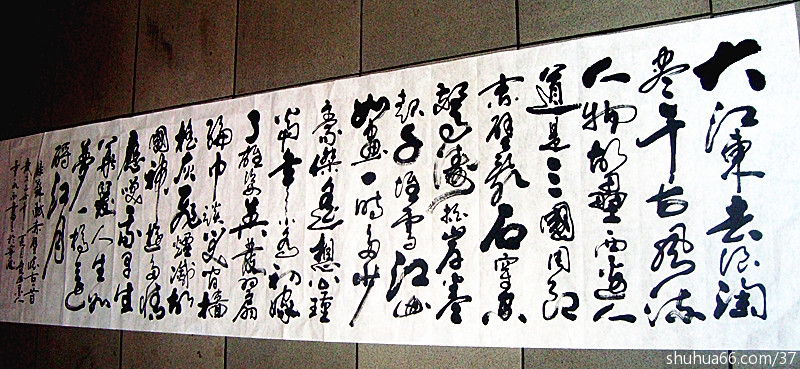 大江東去浪淘
盡千古風流
人物故壘西邊人
道是三國周郎
赤壁亂石穿空
驚濤拍岸卷
起千堆雪江山
如畫一時多少
豪傑遙想公瑾
當年小喬初嫁
了雄姿英發羽扇
綸巾談笑間檣
櫓灰飛煙滅故
國神遊多情
應笑我早生
華髮人生如
夢一樽還
酹江月
shuhua66.com/37